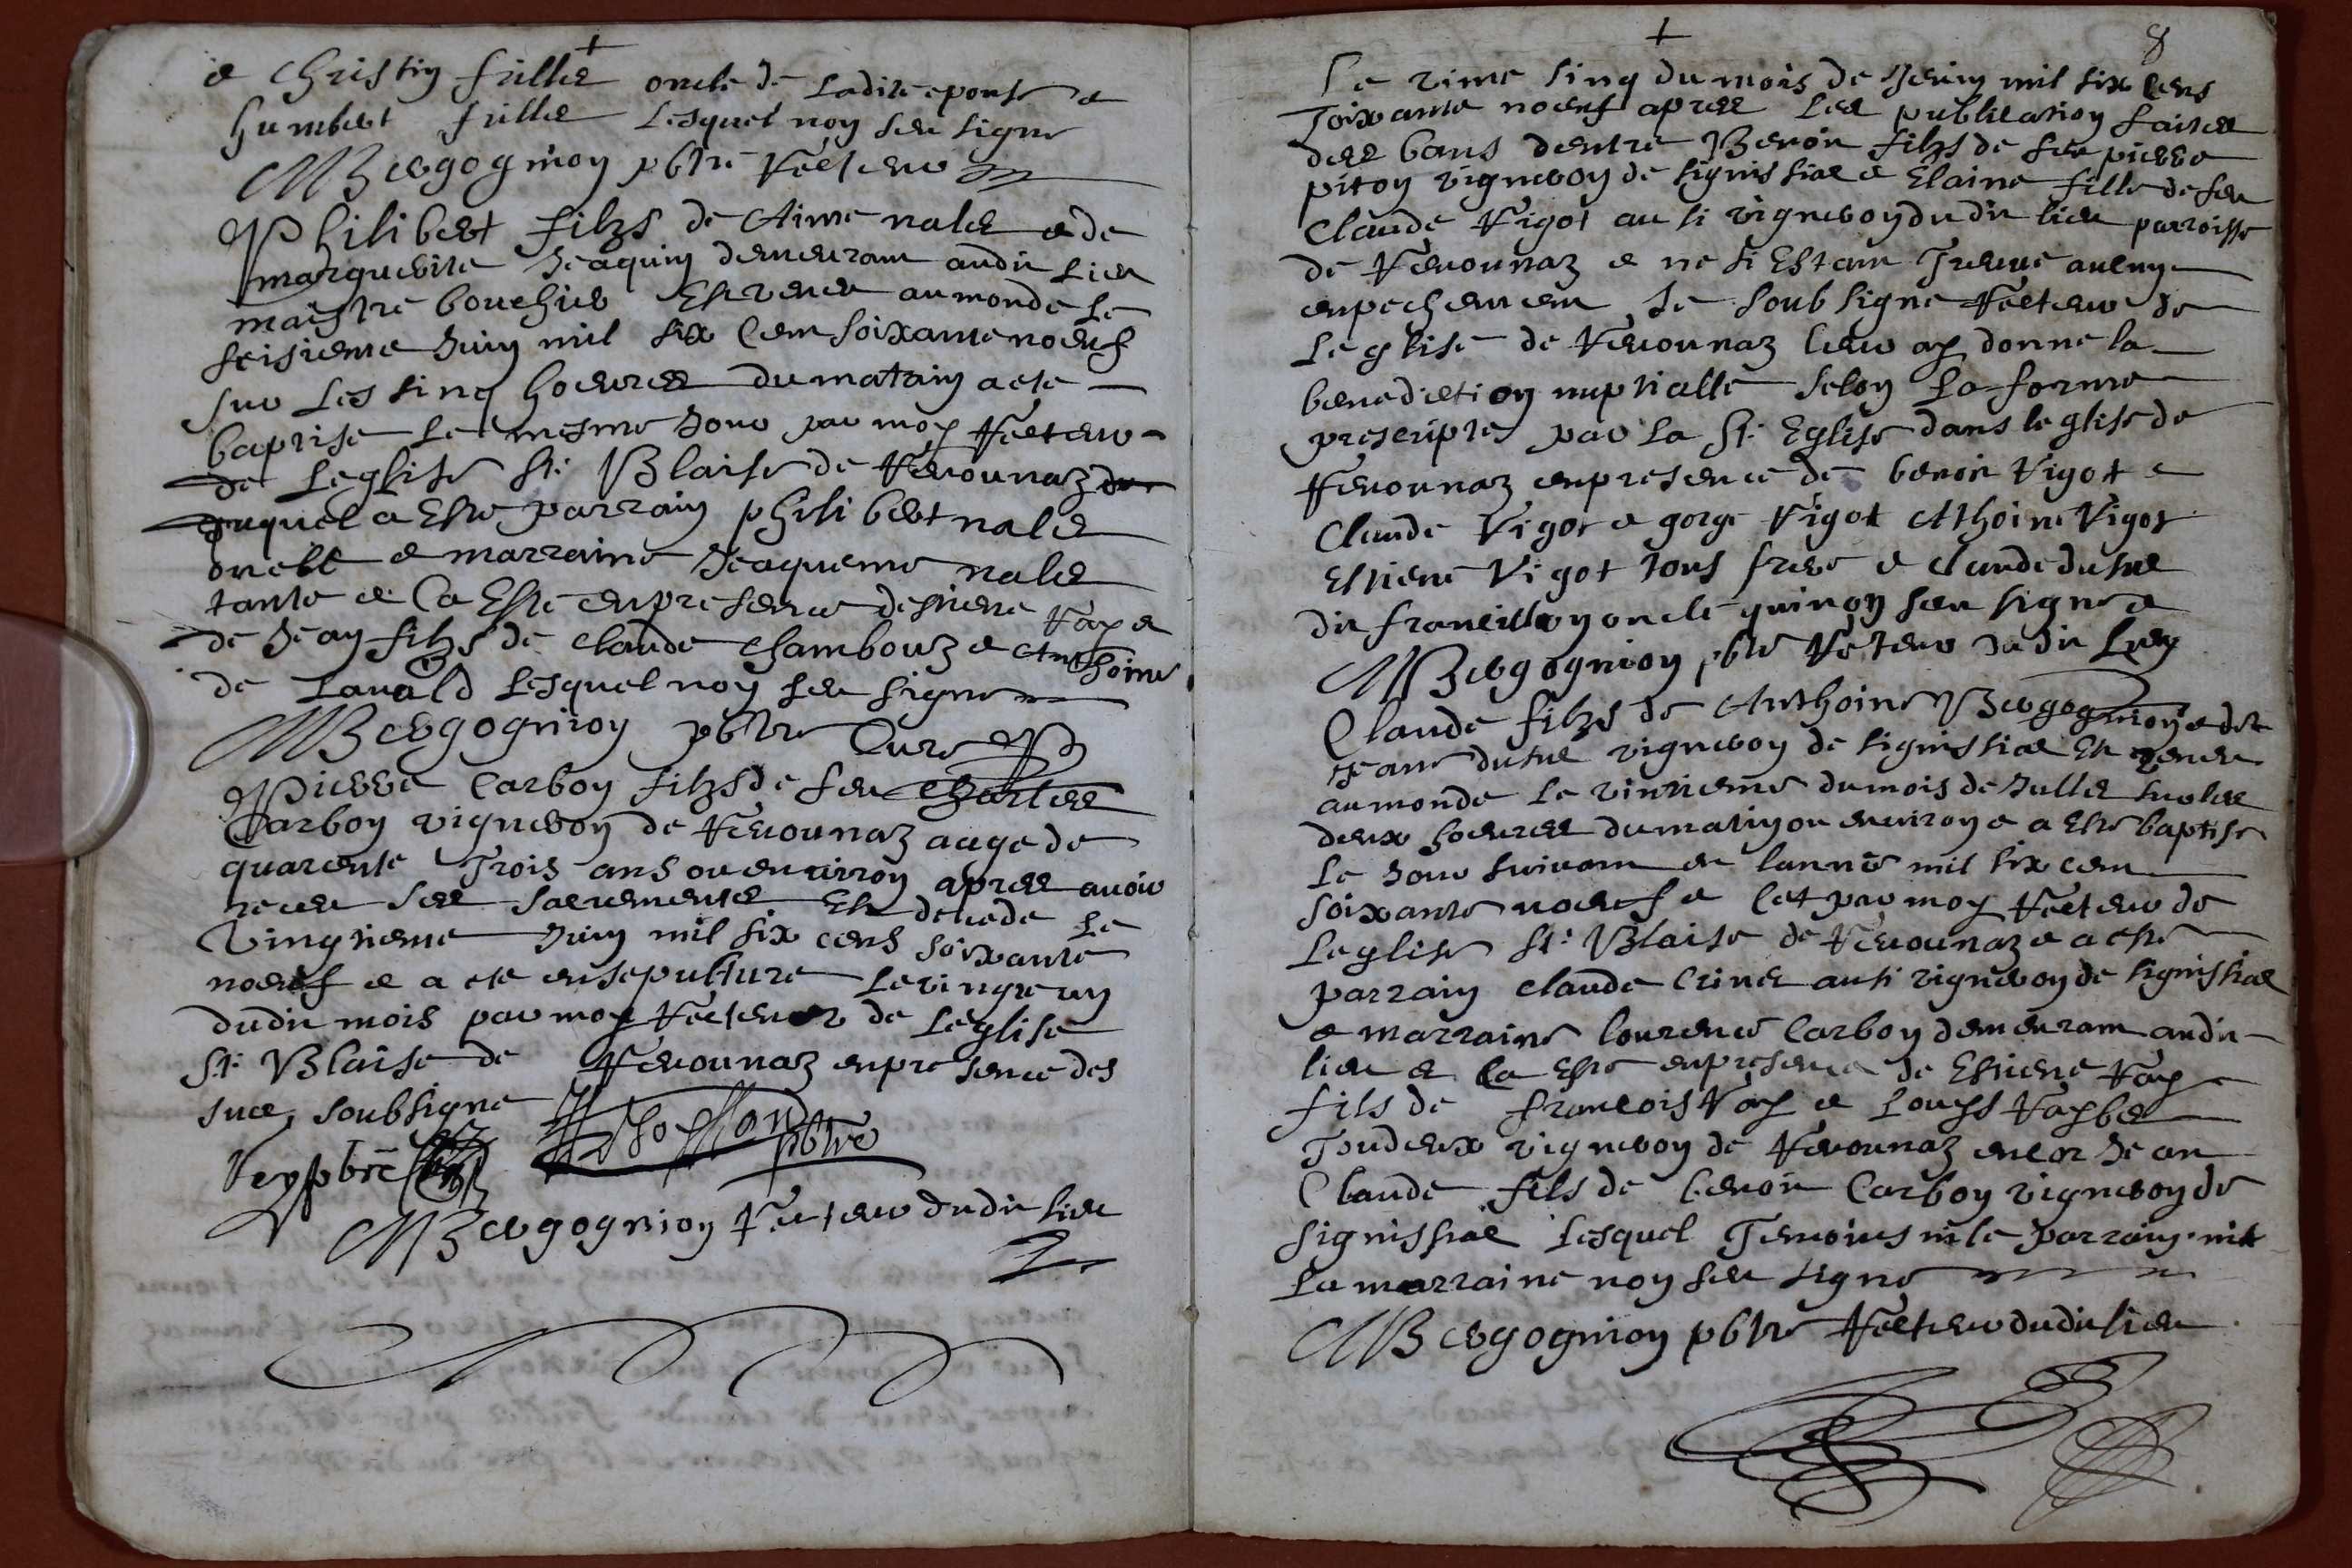 e Christin frillie oncle de ladite epouse e
humbert frillie lesquel non seu signe
MBergognion pbtre Recteur
Philibert filzs de Aime nalle e de
marguerite Jaquin demeurant audit lieu
maistre bouchier Est venu au monde le
seisieme Juin mil six Cent soixante noeuf
sur les sinq hoeures du matain a ete
baptise le mesme Jour par moy Recteur
de Leglise St. Blaise de Revonnaz
duquel a Este parrain philibert nalle
oncle e marraine Jaqueme nalle
tante e Ca Este en presence destiene Ray e
de Jean filzs de Claude Chambouz e Anthoine
de Lavald Lesquel non seu signe
MBergognion pbtre Cure
Pierre Carbon filzs de feu Charles
Carbon vigneron de Revonnaz aage de
quarente Trois ans ou environ apres avoir
receu ses sacrements Est decede Le
vingtieme Juin mil six cens soixante
noeuf e a ete ensepulture Le vingt e un
dudit mois par moy Recteur de Leglise
St. Blaise de Revonnaz en presence des
sues soubsigne
pbre pbtre
MBergognion Recteur dudit lieu
8
Le vime sinq du mois de Jeuin mil six cens
soixante noeuf apres les publication faites
des bans dentre Benoit filzs de feu pierre
piton vigneron de signissiae e Elaine fille de feu
Claude Vigot ausi vigneron dudit lieu parroisse
de Revonnaz e ne si Estant Treuve aucun
enpechement Je soubsigne Recteur de
Leglise de Revonnaz leur ay donne la
benediction nuptialle selon la forme
prescriptes par la St. Eglise dans leglise de
Revonnaz en presence de benoit Vigot e
Claude Vigot e gorge Vigot Athoine Vigot
Estiene Vigot tous frere e claude dutue
dit francillon oncle qui non seu signe e
MBergognion pbtre Recteur dudit Lieu
Claude filzs de Anthoine Bergognion e de
Jeane dutue vigneron de signissiae Est venu
au monde le vintieme du mois de Jullie sur les
deux hoeures du matin ou environ e a Este baptise
le Jour suivant en lannee mil six cent
soixante noeuf e Cet par moy Recteur de
Leglise St. Blaise de Revonnaz e a este
parrain Claude Crine ausi vigneron de signissiae
e marraine lourence Carbon demeurant audit
lieu e Ca Este en presence de Estiene Ray
fils de francois Ray e Louys Raybe
Toudeux vigneron de Revonnaz encor Jean
Claude fils de benoit Carbon vigneron de
signissiae Lesquel Temoins ni le parrain nit
La marraine non seu signe
MBergognion pbtre Recteur dudit lieu